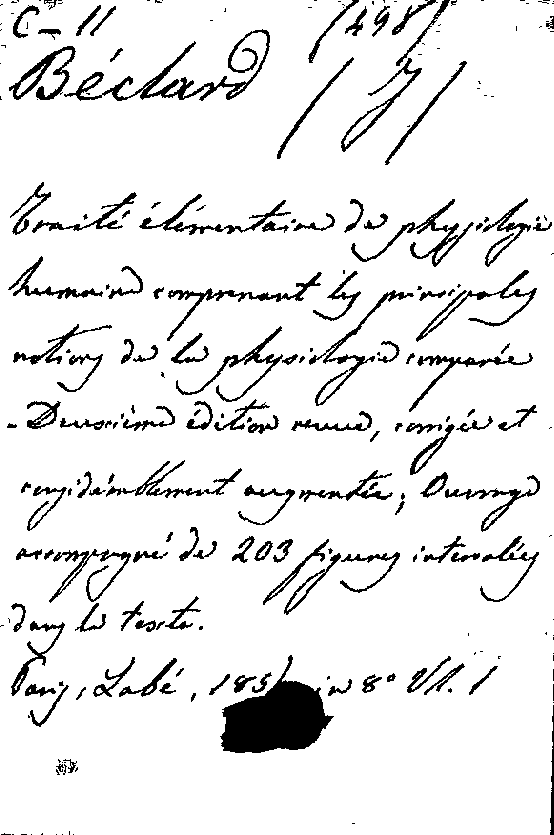 C-11 (498)
Béclard (J)
Traité élémentaire de physiologie
humaine comprenant les principales
notions de la physiologie comparée
- Deuxième édition revue, corrigée et
considérablement augmentée; Ouvrage
accompagné de 203 figures intercalées
dans le texte.
Paris, Labé, in 8° Vl. 1